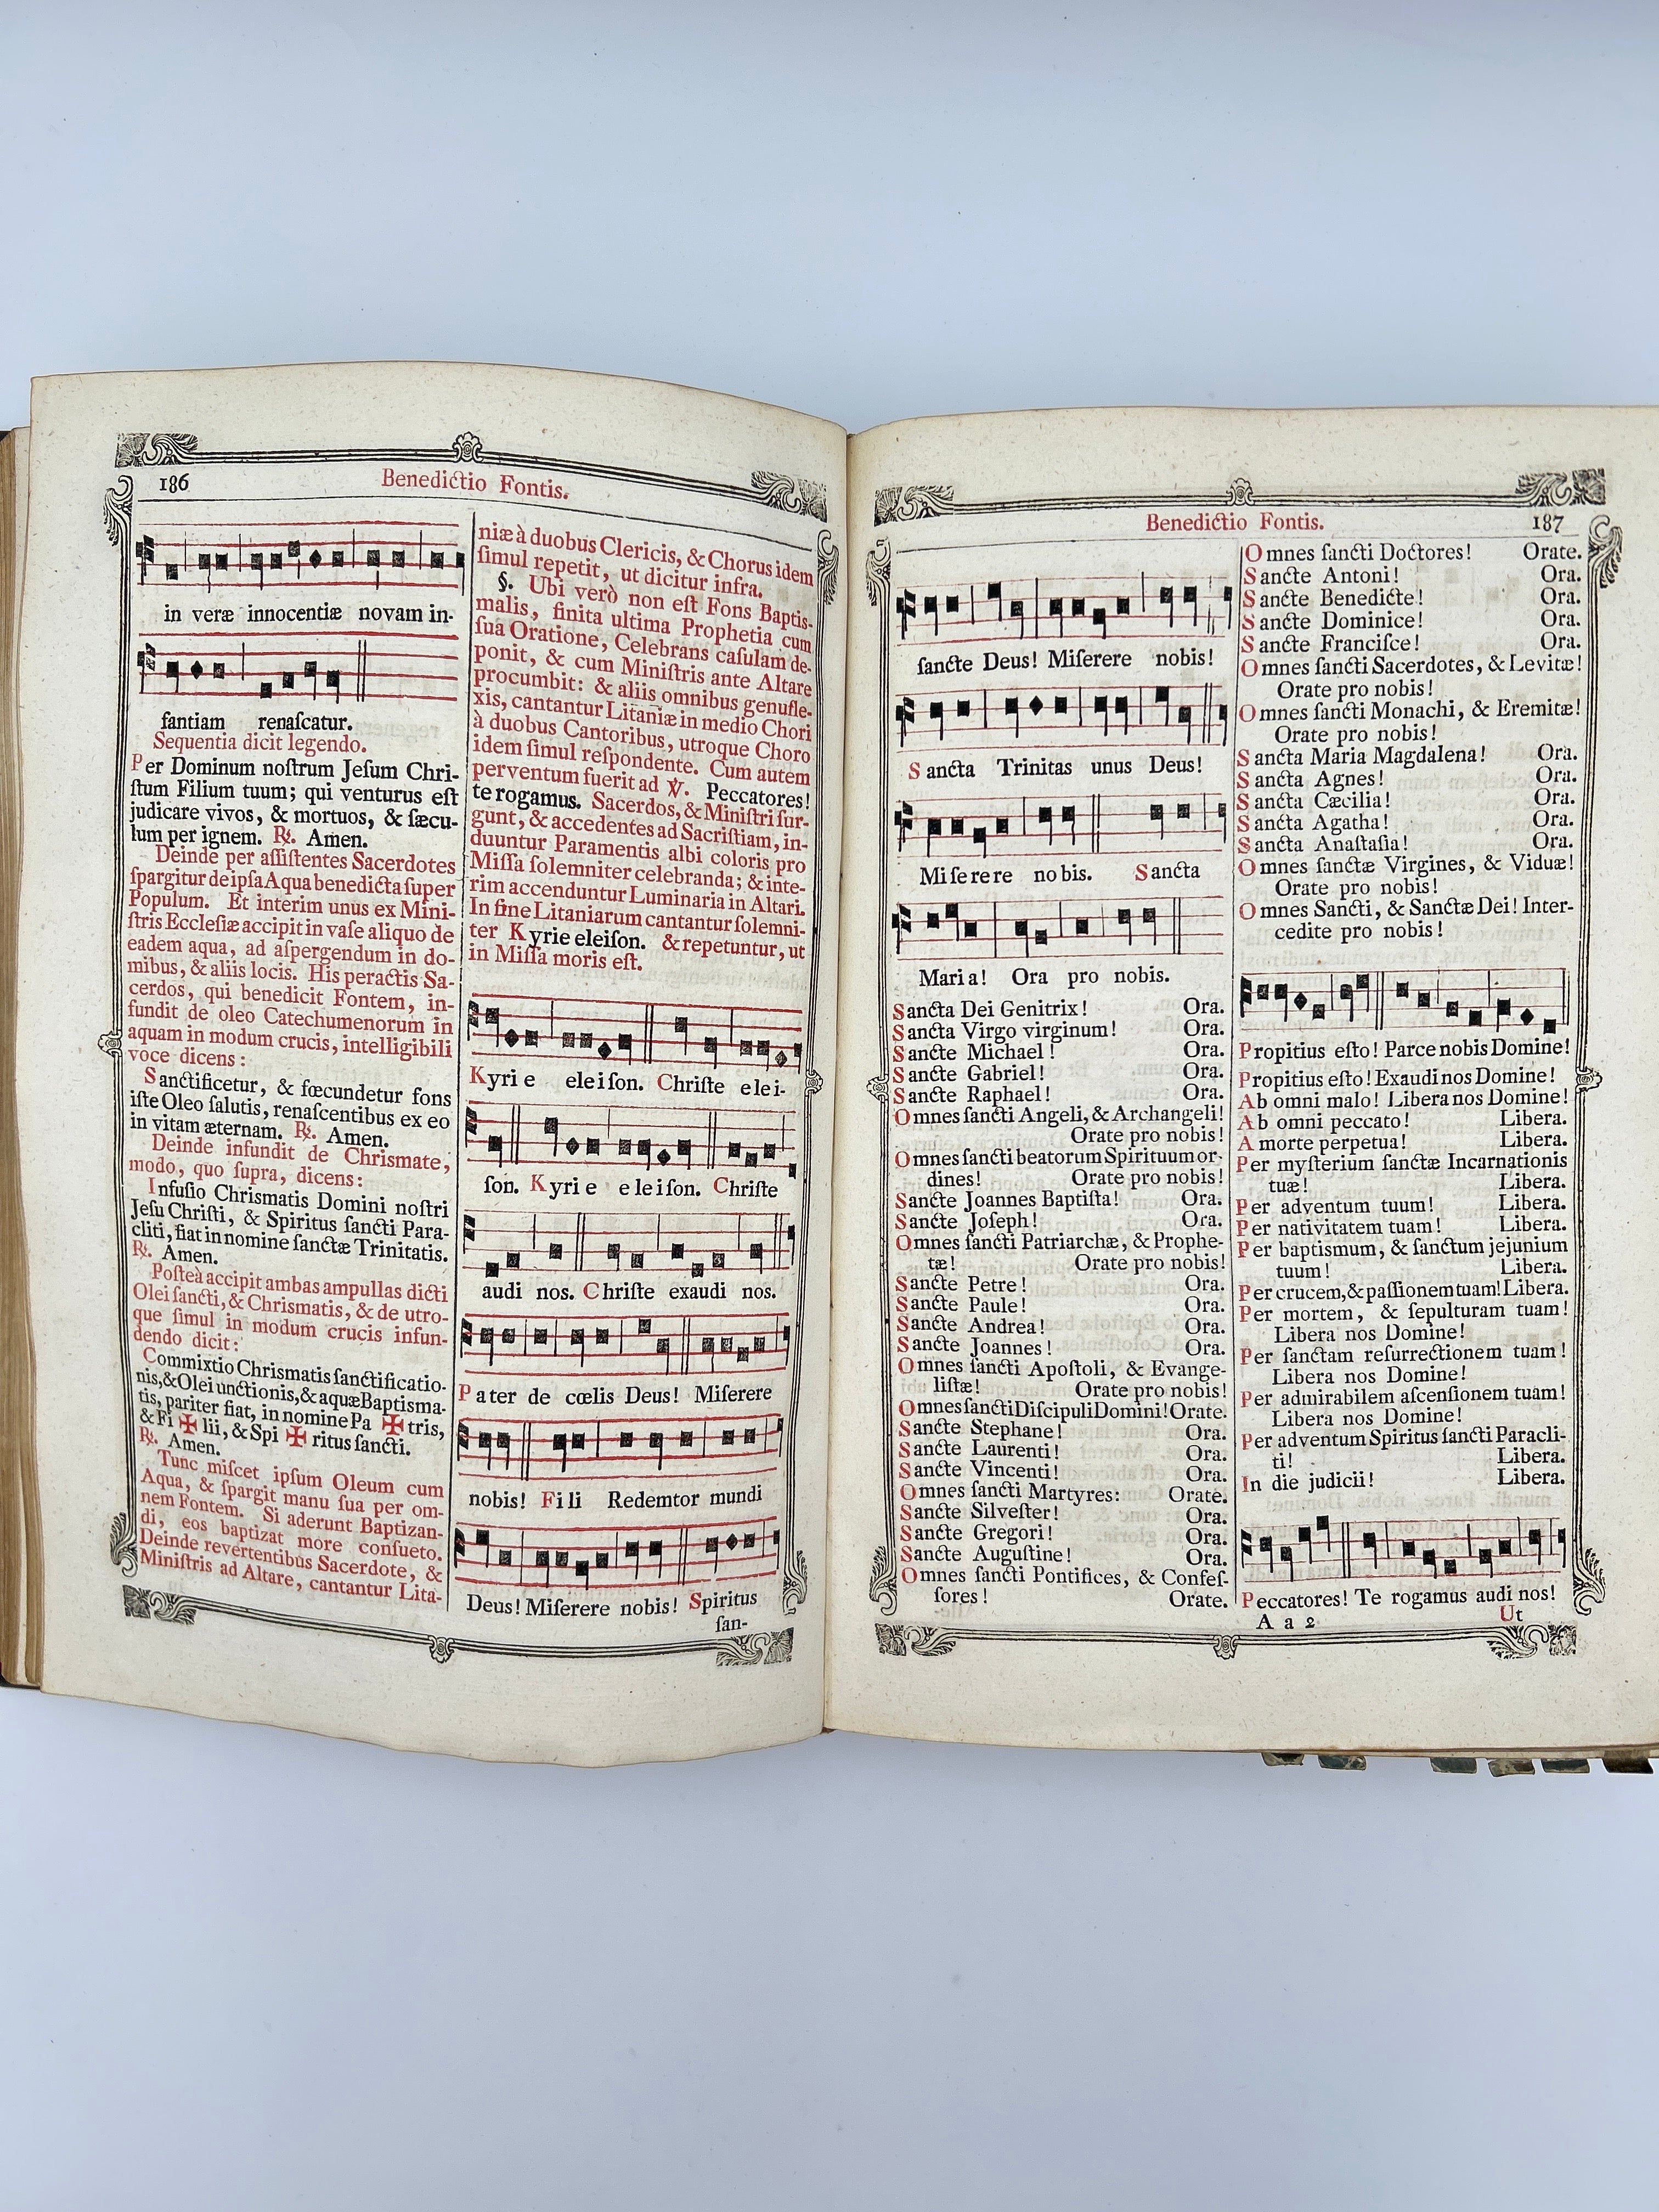 186
Benedictio Fontis.
in veræ innocentiæ novam in-
fantiam renaſcatur.
Sequentia dicit legendo.
Per Dominum noſtrum Jeſum Chri-
ſtum Filium tuum; qui venturus eſt
judicare vivos, & mortuos, & ſæcu-
lum per ignem. ℟. Amen.
Deinde per aſſiſtentes Sacerdotes
ſpargitur de ipſa Aqua benedicta ſuper
Populum. Et interim unus ex Mini-
ſtris Eccleſiæ accipit in vaſe aliquo de
eadem aqua, ad aſpergendum in do-
mibus, & aliis locis. His peractis Sa-
cerdos, qui benedicit Fontem, in-
fundit de oleo Catechumenorum in
aquam in modum crucis, intelligibili
voce dicens:
Sanctificetur, & fœcundetur fons
iſte Oleo ſalutis, renaſcentibus ex eo
in vitam æternam. ℟. Amen.
Deinde infundit de Chrismate,
modo, quo ſupra, dicens:
Infuſio Chrismatis Domini noſtri
Jeſu Chriſti, & Spiritus ſancti Para-
cliti, fiat in nomine ſanctæ Trinitatis.
℟. Amen.
Poſteà accipit ambas ampullas dicti
Olei ſancti, & Chrismatis, & de utro-
que ſimul in modum crucis infun-
dendo dicit:
Commixtio Chrismatis ſanctificatio-
nis, & Olei unctionis, & aquæ Baptisma-
tis, pariter fiat, in nomine Pa ✠ tris,
& Fi ✠ lii, & Spi ✠ ritus ſancti.
℟. Amen.
Tunc miſcet ipſum Oleum cum
Aqua, & ſpargit manu ſua per om-
nem Fontem. Si aderunt Baptizan-
di, eos baptizat more conſueto.
Deinde revertentibus Sacerdote, &
Miniſtris ad Altare, cantantur Lita-
niæ à duobus Clericis, & Chorus idem
ſimul repetit, ut dicitur infra.
§. Ubi verò non eſt Fons Baptis-
malis, finita ultima Prophetia cum
ſua Oratione, Celebrans caſulam de-
ponit, & cum Miniſtris ante Altare
procumbit: & aliis omnibus genufle-
xis, cantantur Litaniæ in medio Chori
à duobus Cantoribus, utroque Choro
idem ſimul reſpondente. Cum autem
perventum fuerit ad ℣. Peccatores!
te rogamus. Sacerdos, & Miniſtri ſur-
gunt, & accedentes ad Sacriſtiam, in-
duuntur Paramentis albi coloris pro
Miſſa ſolemniter celebranda; & inte-
rim accenduntur Luminaria in Altari.
In fine Litaniarum cantantur ſolemni-
ter Kyrie eleiſon. & repetuntur, ut
in Miſſa moris eſt.
Kyri e elei ſon. Chriſte e le i-
ſon. Kyri e e le i ſon. Chriſte
audi nos. Chriſte exaudi nos.
Pater de cœlis Deus! Miſerere
nobis! Fi li Redemtor mundi
Deus! Miſerere nobis! Spiritus
ſan-
Benedictio Fontis.
187
ſancte Deus! Miſerere nobis!
Sancta Trinitas unus Deus!
Mi ſe re re no bis. Sancta
Mari a! Ora pro nobis.
Sancta Dei Genitrix! Ora.
Sancta Virgo virginum! Ora.
Sancte Michael! Ora.
Sancte Gabriel! Ora.
Sancte Raphael! Ora.
Omnes ſancti Angeli, & Archangeli!
Orate pro nobis!
Omnes ſancti beatorum Spirituum or-
dines! Orate pro nobis!
Sancte Joannes Baptiſta! Ora.
Sancte Joſeph! Ora.
Omnes ſancti Patriarchæ, & Prophe-
tæ! Orate pro nobis!
Sancte Petre! Ora.
Sancte Paule! Ora.
Sancte Andrea! Ora.
Sancte Joannes! Ora.
Omnes ſancti Apoſtoli, & Evange-
liſtæ! Orate pro nobis!
Omnes ſancti Diſcipuli Domini! Orate.
Sancte Stephane! Ora.
Sancte Laurenti! Ora.
Sancte Vincenti! Ora.
Omnes ſancti Martyres: Orate.
Sancte Silveſter! Ora.
Sancte Gregori! Ora.
Sancte Auguſtine! Ora.
Omnes ſancti Pontifices, & Confeſ-
ſores! Orate.
Omnes ſancti Doctores! Orate.
Sancte Antoni! Ora.
Sancte Benedicte! Ora.
Sancte Dominice! Ora.
Sancte Franciſce! Ora.
Omnes ſancti Sacerdotes, & Levitæ!
Orate pro nobis!
Omnes ſancti Monachi, & Eremitæ!
Orate pro nobis!
Sancta Maria Magdalena! Ora.
Sancta Agnes! Ora.
Sancta Cæcilia! Ora.
Sancta Agatha! Ora.
Sancta Anaſtaſia! Ora.
Omnes ſanctæ Virgines, & Viduæ!
Orate pro nobis!
Omnes Sancti, & Sanctæ Dei! Inter-
cedite pro nobis!
Propitius eſto! Parce nobis Domine!
Propitius eſto! Exaudi nos Domine!
Ab omni malo! Libera nos Domine!
Ab omni peccato! Libera.
A morte perpetua! Libera.
Per myſterium ſanctæ Incarnationis
tuæ! Libera.
Per adventum tuum! Libera.
Per nativitatem tuam! Libera.
Per baptismum, & ſanctum jejunium
tuum! Libera.
Per crucem, & paſſionem tuam! Libera.
Per mortem, & ſepulturam tuam!
Libera nos Domine!
Per ſanctam reſurrectionem tuam!
Libera nos Domine!
Per admirabilem aſcenſionem tuam!
Libera nos Domine!
Per adventum Spiritus ſancti Paracli-
ti! Libera.
In die judicii! Libera.
Peccatores! Te rogamus audi nos!
A a 2 Ut